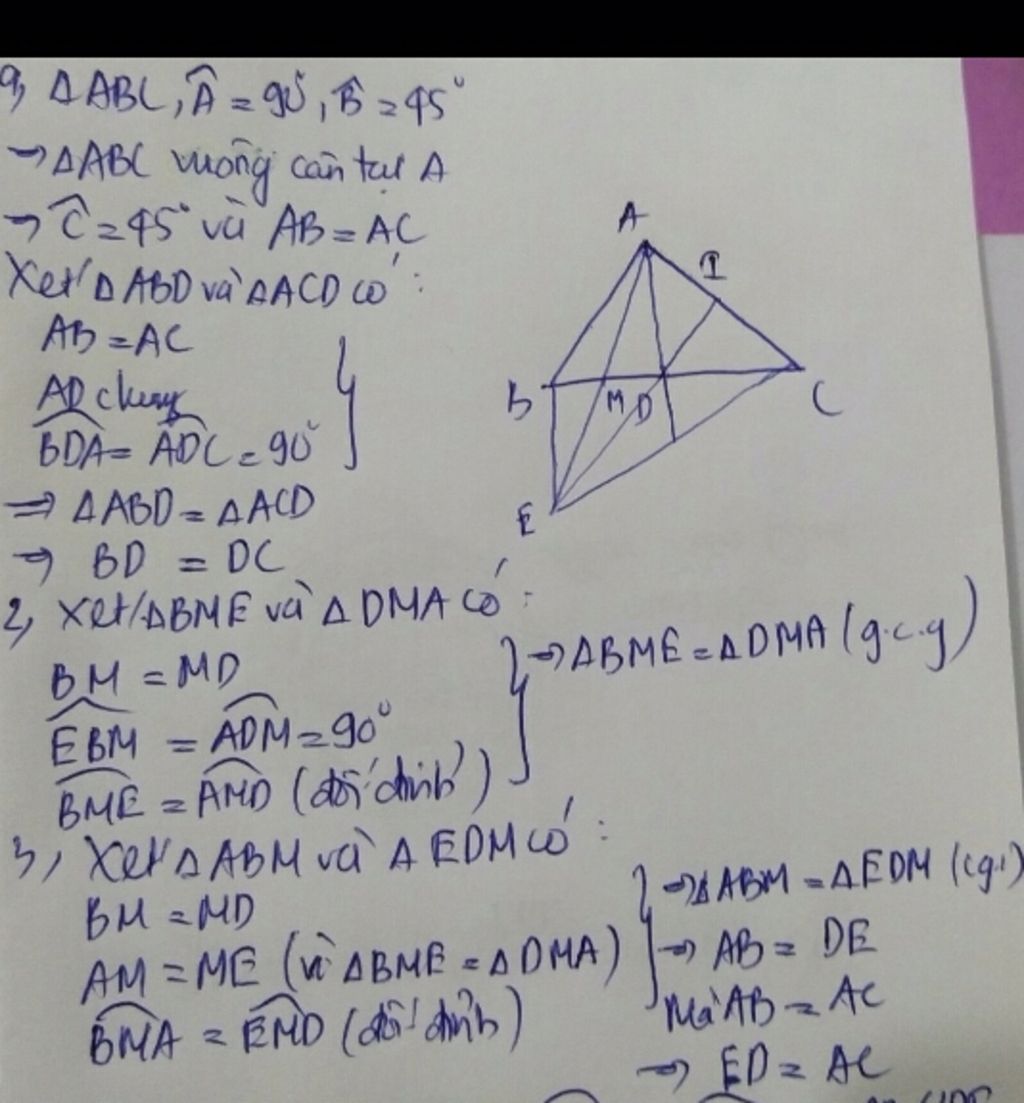 a, ΔABC, Â = 90°, B̂ = 45°
→ ΔABC vuông cân tại A
→ Ĉ = 45° và AB = AC
Xét ΔABD và ΔACD có:
AB = AC
AD chung
BDA = ADC = 90°
⇒ ΔABD = ΔACD
→ BD = DC
A
I
B
M
D
C
E
2, Xét ΔBME và ΔDMA có:
BM = MD
EBM = ADM = 90°
BME = AMD (đối đỉnh)
→ ΔBME = ΔDMA (g.c.g)
3, Xét ΔABM và ΔEDM có:
BM = MD
AM = ME (vì ΔBME = ΔDMA)
BMA = EMD (đối đỉnh)
→ ΔABM = ΔEDM
→ AB = DE
Mà AB = AC
→ ED = AC